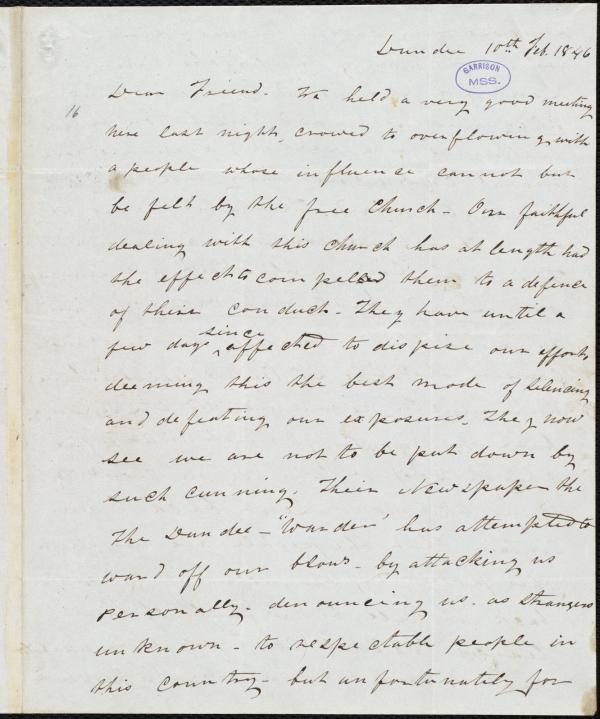 Dundee 10th Feb. 1846
GARRISON
MSS.
16
Dear Friend. We held a very good meeting
here last night, crowed to overflowing with
a people whose influence cannot but
be felt by the free Church - Our faithful
dealing with this church has at length had
the effect to compeled them to a defence
of their conduct. They have until a
few days since affected to dispise our efforts
deeming this the best mode of silencing
and defeating our exposures. They now
see we are not to be put down by
such cunning. Their Newspaper the
The Dundee - "Warder" has attempted to
ward off our blows - by attacking us
personally - denouncing us - as strangers
unknown - to respectable people in
this country - but unfortunately for